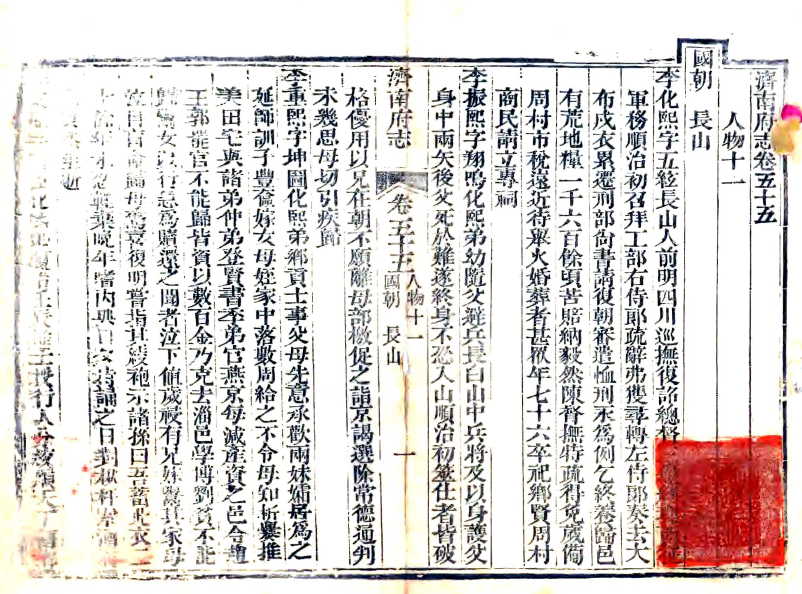 濟南府志卷五十五
人物十一
國朝 長山
李化熙字五絃長山人前明四川巡撫復命總督
軍務順治初召拜工部右侍郎疏辭弗獲尋轉左侍郎奏去大
布戍衣累遷刑部尚書請復朝審遣恤刑永為例乞終養歸邑
有荒地糧一千六百餘頃苦賠納毅然陳督撫特疏得免歲備
周村市稅遠近待舉火婚葬者甚眾年七十六卒祀鄉賢周村
商民請立專祠
李振熙字翔鳴化熙弟幼隨父避兵長白山中兵將及以身護父
身中兩矢後父死於難遂終身不忍入山順治初筮仕者皆破
濟南府志 卷五十五 人物十一 國朝 長山 一
格優用以兄在朝不願離母部檄促之詣京謁選除常德通判
未幾思母切引疾歸
李重熙字坤圖化熙弟鄉貢士事父母先意承歡兩妹孀居為之
延師訓子豐奩嫁女母姪家中落數周給之不令母知析爨推
美田宅與諸弟仲弟登賢書季弟官燕京每減產資之邑令趙
王郭罷官不能歸皆資以數百金乃克去淄邑學博劉貧不能
歸鬻女以行急為贖還之聞者泣下值歲祲有兄妹
復明嘗指其綾袍示諸孫曰吾蓄此衣二
晚年嗜內典
逝